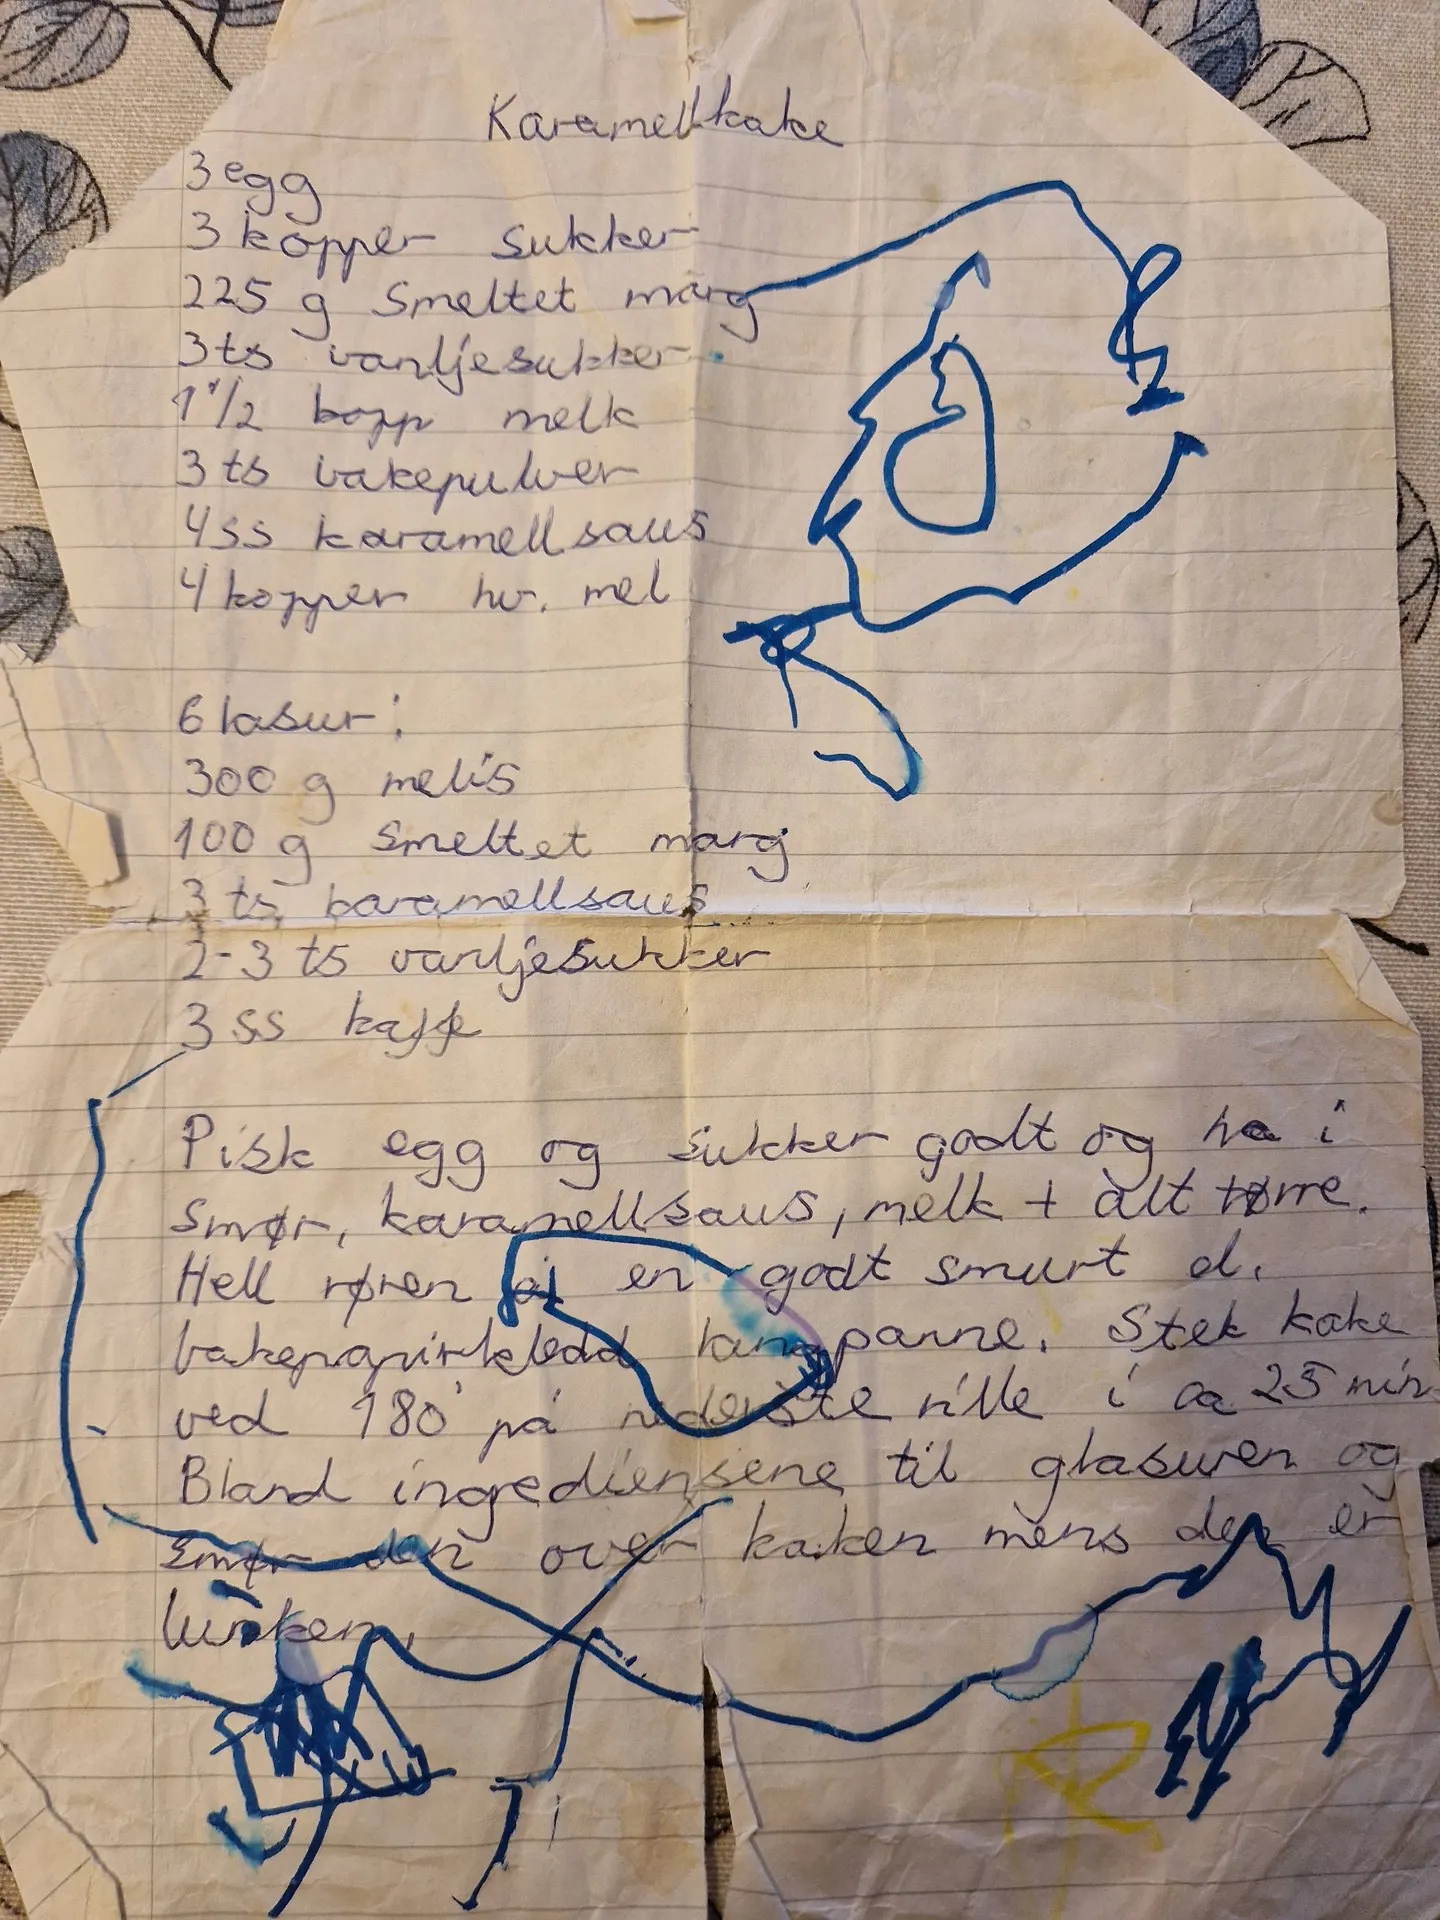 Karamellkake
3 egg
3 kopper sukker
225 g smeltet marg
3 ts vaniljesukker
1 1/2 kopp melk
3 ts bakepulver
4 ss karamellsaus
4 kopper hv. mel
Glasur:
300 g melis
100 g smeltet marg
3 ts karamellsaus
2-3 ts vaniljesukker
3 ss kaffe
Pisk egg og sukker godt og ha i
smør, karamellsaus, melk + alt tørre.
Hell røren i en godt smurt el.
bakepapirkledd langpanne. Stek kake
ved 180° på nederste rille i ca 25 min
Bland ingrediensene til glasuren og
smør den over kaken mens den er
lunken.